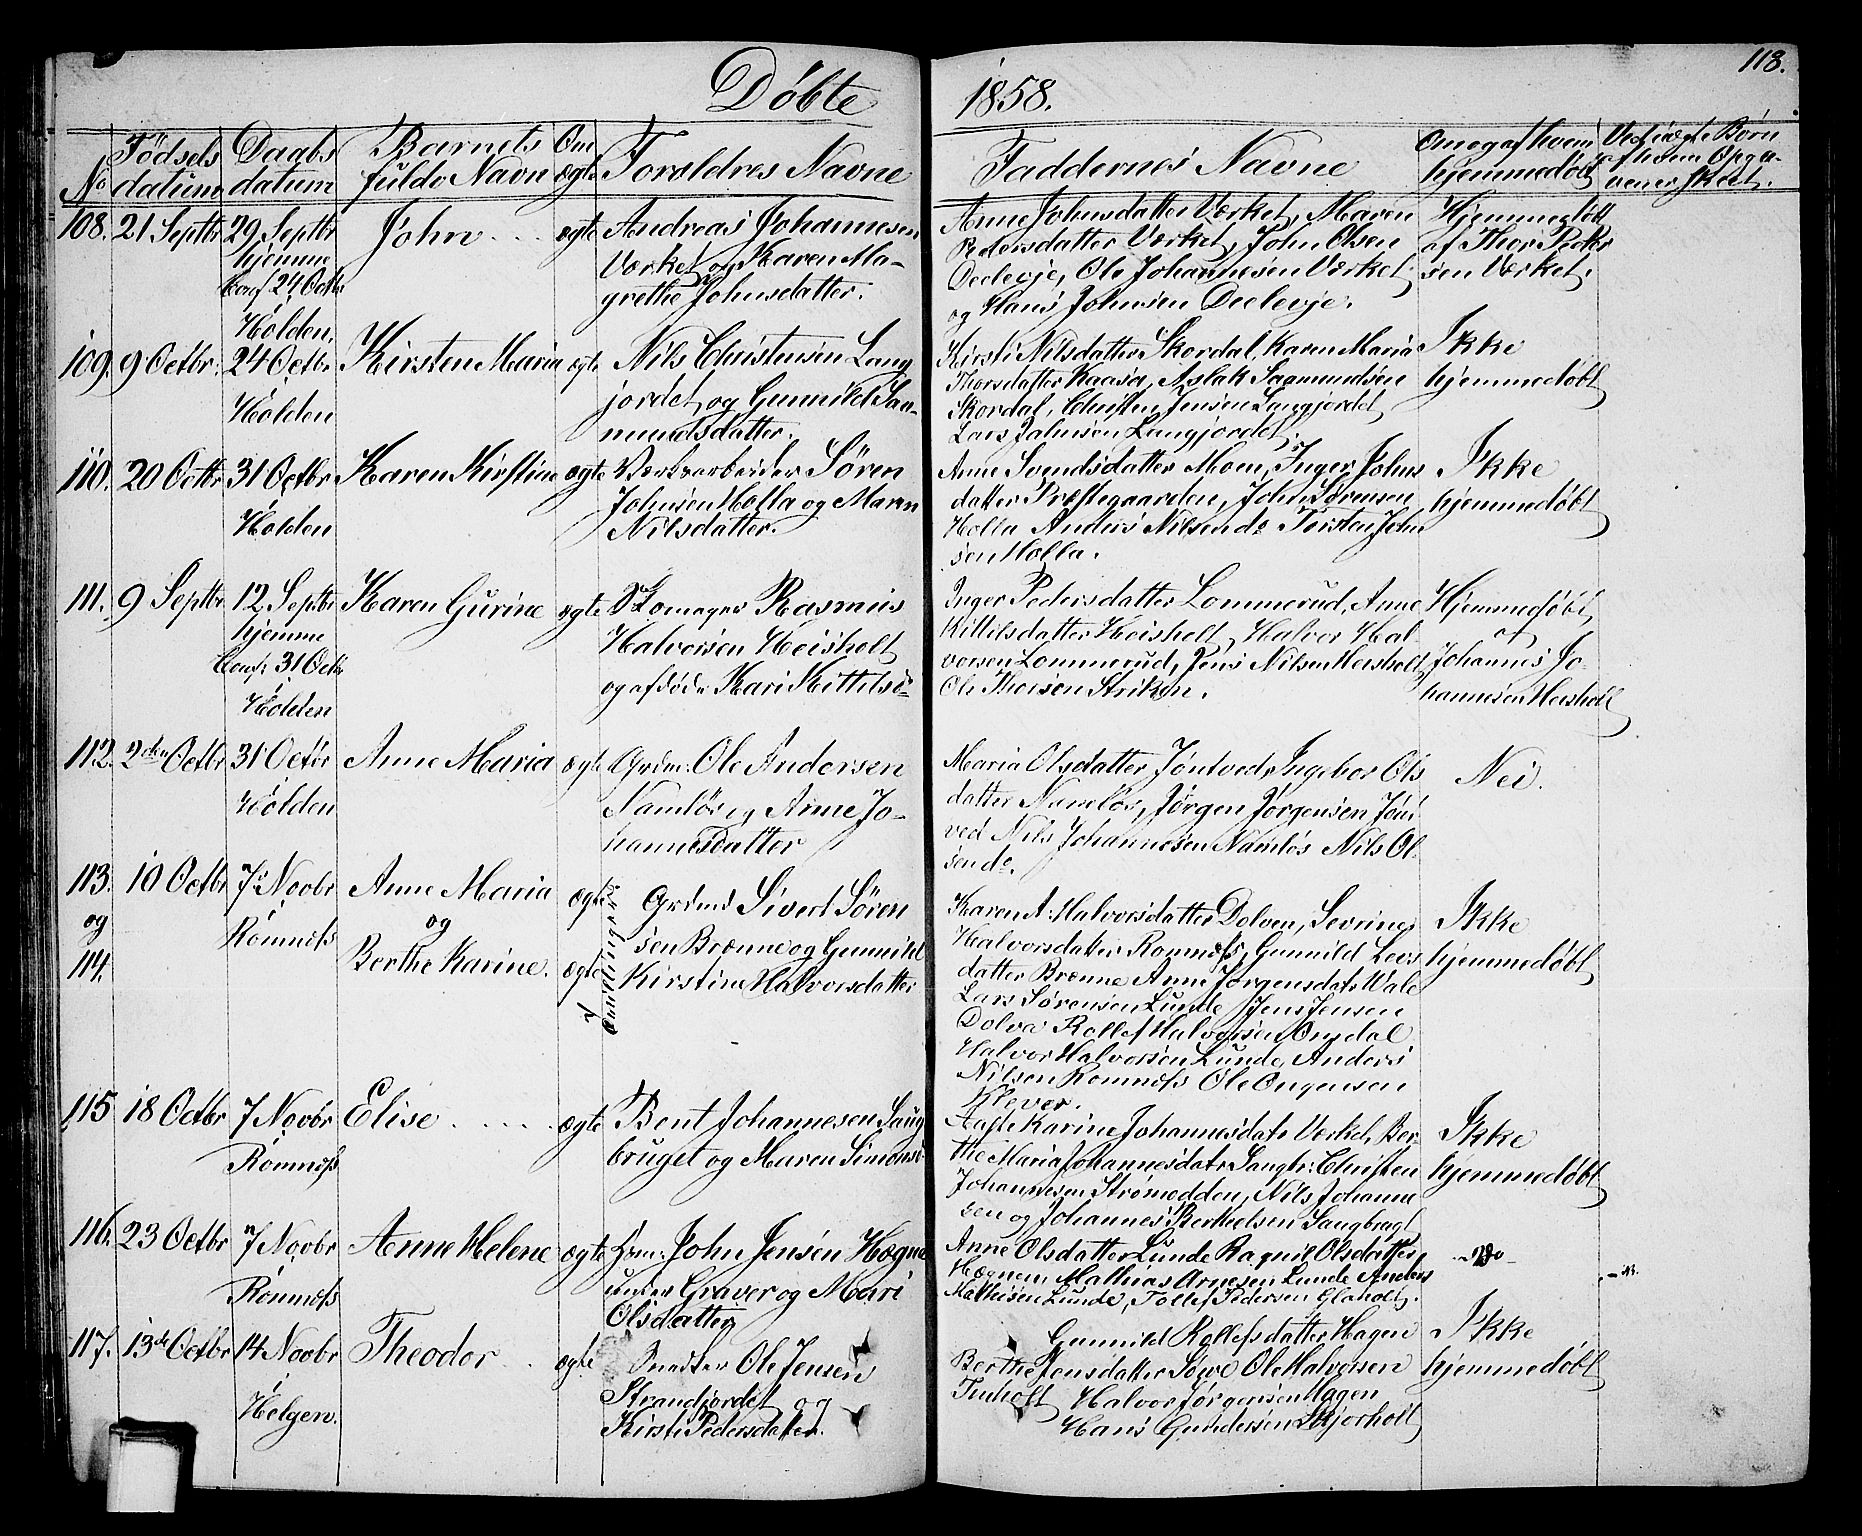 118.
Döbte
1858.
No
Födsels
datum
Daabs
datum
Barnets
fulde Navn
Om
ægte
Forældres Navne
Faddernes Navne
hjemmedøbt
108. 21 Septbr
29 Septbr
hjemme
Conf. 24 Octbr
Holden.
John
ægte
Andreas Johannesen
Værket og Karen Ma-
grethe Johnsdatter.
Anne Johnsdatter Værket, Maren
Pedersdatter Værket, John Olsen
Ole Johannesen Værket
og Hans Johnsen
Hjemmedöbt
af Thor Peder
sen Værket.
109. 9 Octbr.
24 Octbr
Holden
Kirsten Maria
ægte
Nils Christensen Lang
jordet og Gunnild Saa-
mundsdatter.
Kirsti Nilsdatter Skordal, Karen Maria
Thorsdatter Kaasa, Aslak Saamundsen
Skordal, Christen Jensen Langjordet
Lars Johnsen Langjordet.
Ikke
hjemmedöbt
110. 20 Octbr
31 Octbr
Holden
Karen Kirstine
ægte
Værksarbeider Sören
Johnsen Holla og Maren
Nilsdatter.
Anne Svendsdatter Moen, Inger Johns
datter Præstegaarden, John Sörensen
Holla Anders Nilsen do Torsten John
sen Holla.
Ikke
hjemmedöbt
111. 9 Septbr
12 Septbr
hjemme
Conf. 31 Octbr
Holden
Karen Gurine
ægte
Skomager Rasmus
Halvorsen Heisholt
og afdöde Kari Kittilsd
Inger Pedersdatter Lommerud, Anne
Kittilsdatter Heisholt, Halvor Hal-
vorsen Lommerud, Jens Nilsen Heisholt
Ole Thorsen Striken.
Hjemmedöbt
af
Johannes Jo-
hannesen Heisholt
112. 2den Octbr
31 Octbr
Holden
Anne Maria
ægte
Grdm. Ole Andersen
Namlös og Anne Jo-
hannesdatter
Maria Olsdatter Jöntvedt, Ingebor Ols
datter Namlös, Jörgen Jörgensen Jönt
ved Nils Johannesen Namlös Nils Ol-
sen do.
Nei.
113.
og
114.
10 Octbr
7 Novbr
Romnæs
Anne Maria
og
Berthe Karine.
ægte
ægte
Tvillinger
Grdmd Sivert Sören
sen Brenne og Gunnild
Kirstine Halvorsdatter
Karen A. Halvorsdatter Dolven, Sevrine
Halvorsdatter Romnæs, Gunnild Lars
datter Brenne Anne Jörgensdatr Wale
Lars Sörensen Lunde Jens Jensen
Dolva Rollef Halvorsen Omdal
Halvor Halvorsen Lunde, Anders
Nilsen Romnæs Ole
Klever.
Ikke
hjemmedöbt
115 18 Octbr
7 Novbr
Romnæs
Elise
ægte
Bent Johannesen Saug
bruget og Maren Simonsd
Karine Johannesdatr Værket, Ber-
the Maria Johannesdatr Saugbr: Christen
Johannesen Strömodden, Nils Johanne
sen og Johannes Berthelsen Saugbrugt
Ikke
hjemmedöbt
116. 23 Octbr
7 Novbr
Romnæs
Anne Helene
ægte
Hrm: John Jensen Hægna
under Graver og Mari
Olsdatter
Anne Olsdatter Lunde Ragnil Olsdatter
Hægnen, Mathias Arnesen Lunde Anders
Mathisen Lunde, Tollef Pedersen Glaholt.
117. 13de Octbr
14 Novbr
Helgen.
Theodor
ægte
Ole Jensen
Strandjordet og
Kirsti Pedersdatter.
Gunnild Rollefsdatter Hagen
Berthe Jensdatter Sowe Ole Halvorsen
Tinholt Halvor Jörgensen Haagen
Hans Gundersen Skjorholt
Ikke
hjemmedöbt